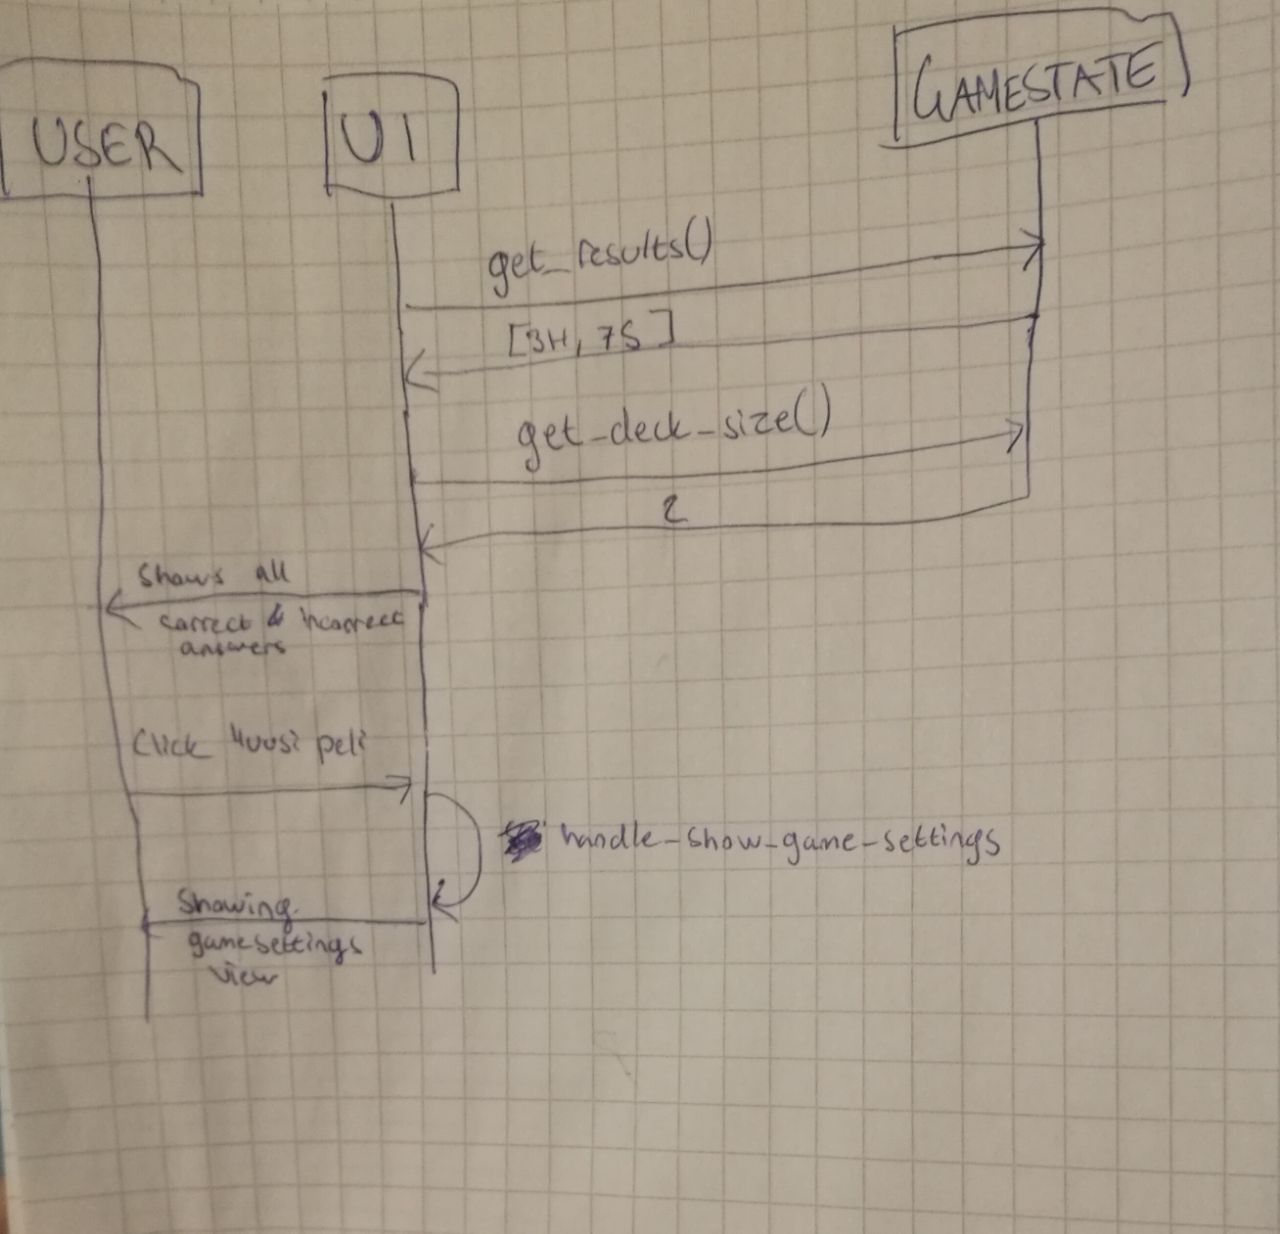 USER
UI
GAMESTATE
get_results()
[3H, 7S]
get_deck_size()
2
Shows all
correct & incorrect
answers
Click "uusi peli
handle_show_game_settings
Showing
gamesettings
view